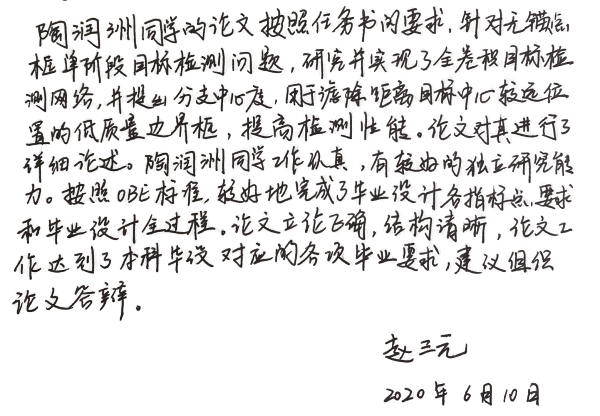 陶润洲同学的论文按照任务书的要求，针对无锚点
框单阶段目标检测问题，研究并实现了全卷积目标检
测网络，并提出分支中心度，用于滤除距离目标中心较远位
置的低质量边界框，提高检测性能。论文对其进行了
详细论述。陶润洲同学工作认真，有较好的独立研究能
力。按照OBE标准，较好地完成了毕业设计各指标点要求
和毕业设计全过程。论文立论正确，结构清晰，论文工
作达到了本科毕设对应的各项毕业要求，建议组织
论文答辩。
赵三元
2020年6月10日